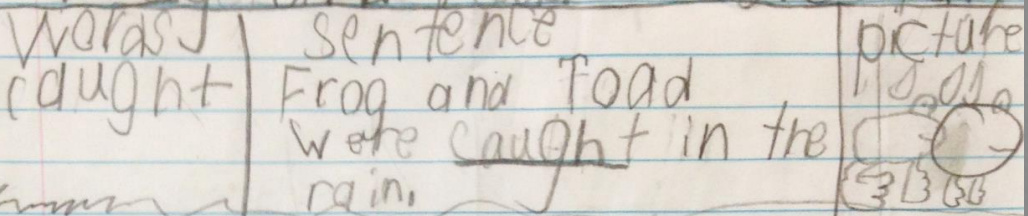 Words sentence picture
caught Frog and Toad
were caught in the
rain.